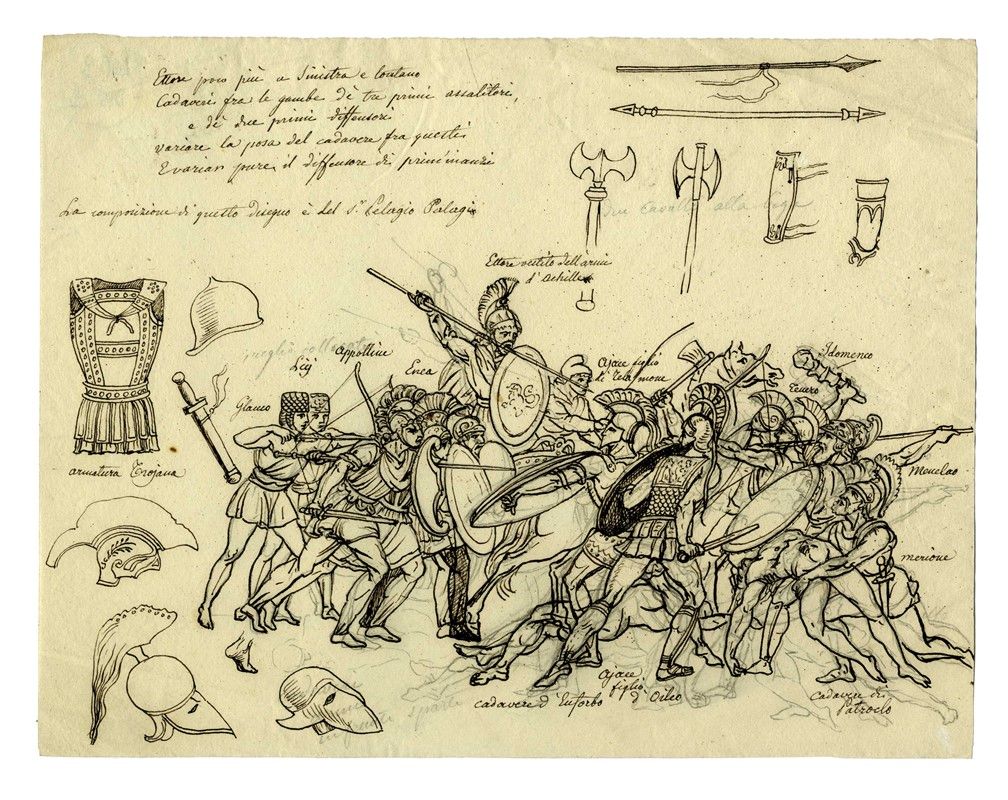 Ettore poco più a Sinistra e lontano
Cadaveri fra le gambe dè tre primi assalitori,
e dè due primi diffensori
variare la posa del cadavere fra questi
E variar pure il diffensore di prim'inanzi
La composizione di questo disegno è del Sr Pelagio Palagi
due cavalli alla biga
Ettore vestito dell'armi
d'Achille
Glauco
Licj
Appolline
Enea
Ajace figlio
di Telamone
Teucro
Idomeneo
Menelao
merione
armatura Trojana
cadavere d'Euforbo
Ajace
figlio
d'Oileo
Cadavere di
Patroclo